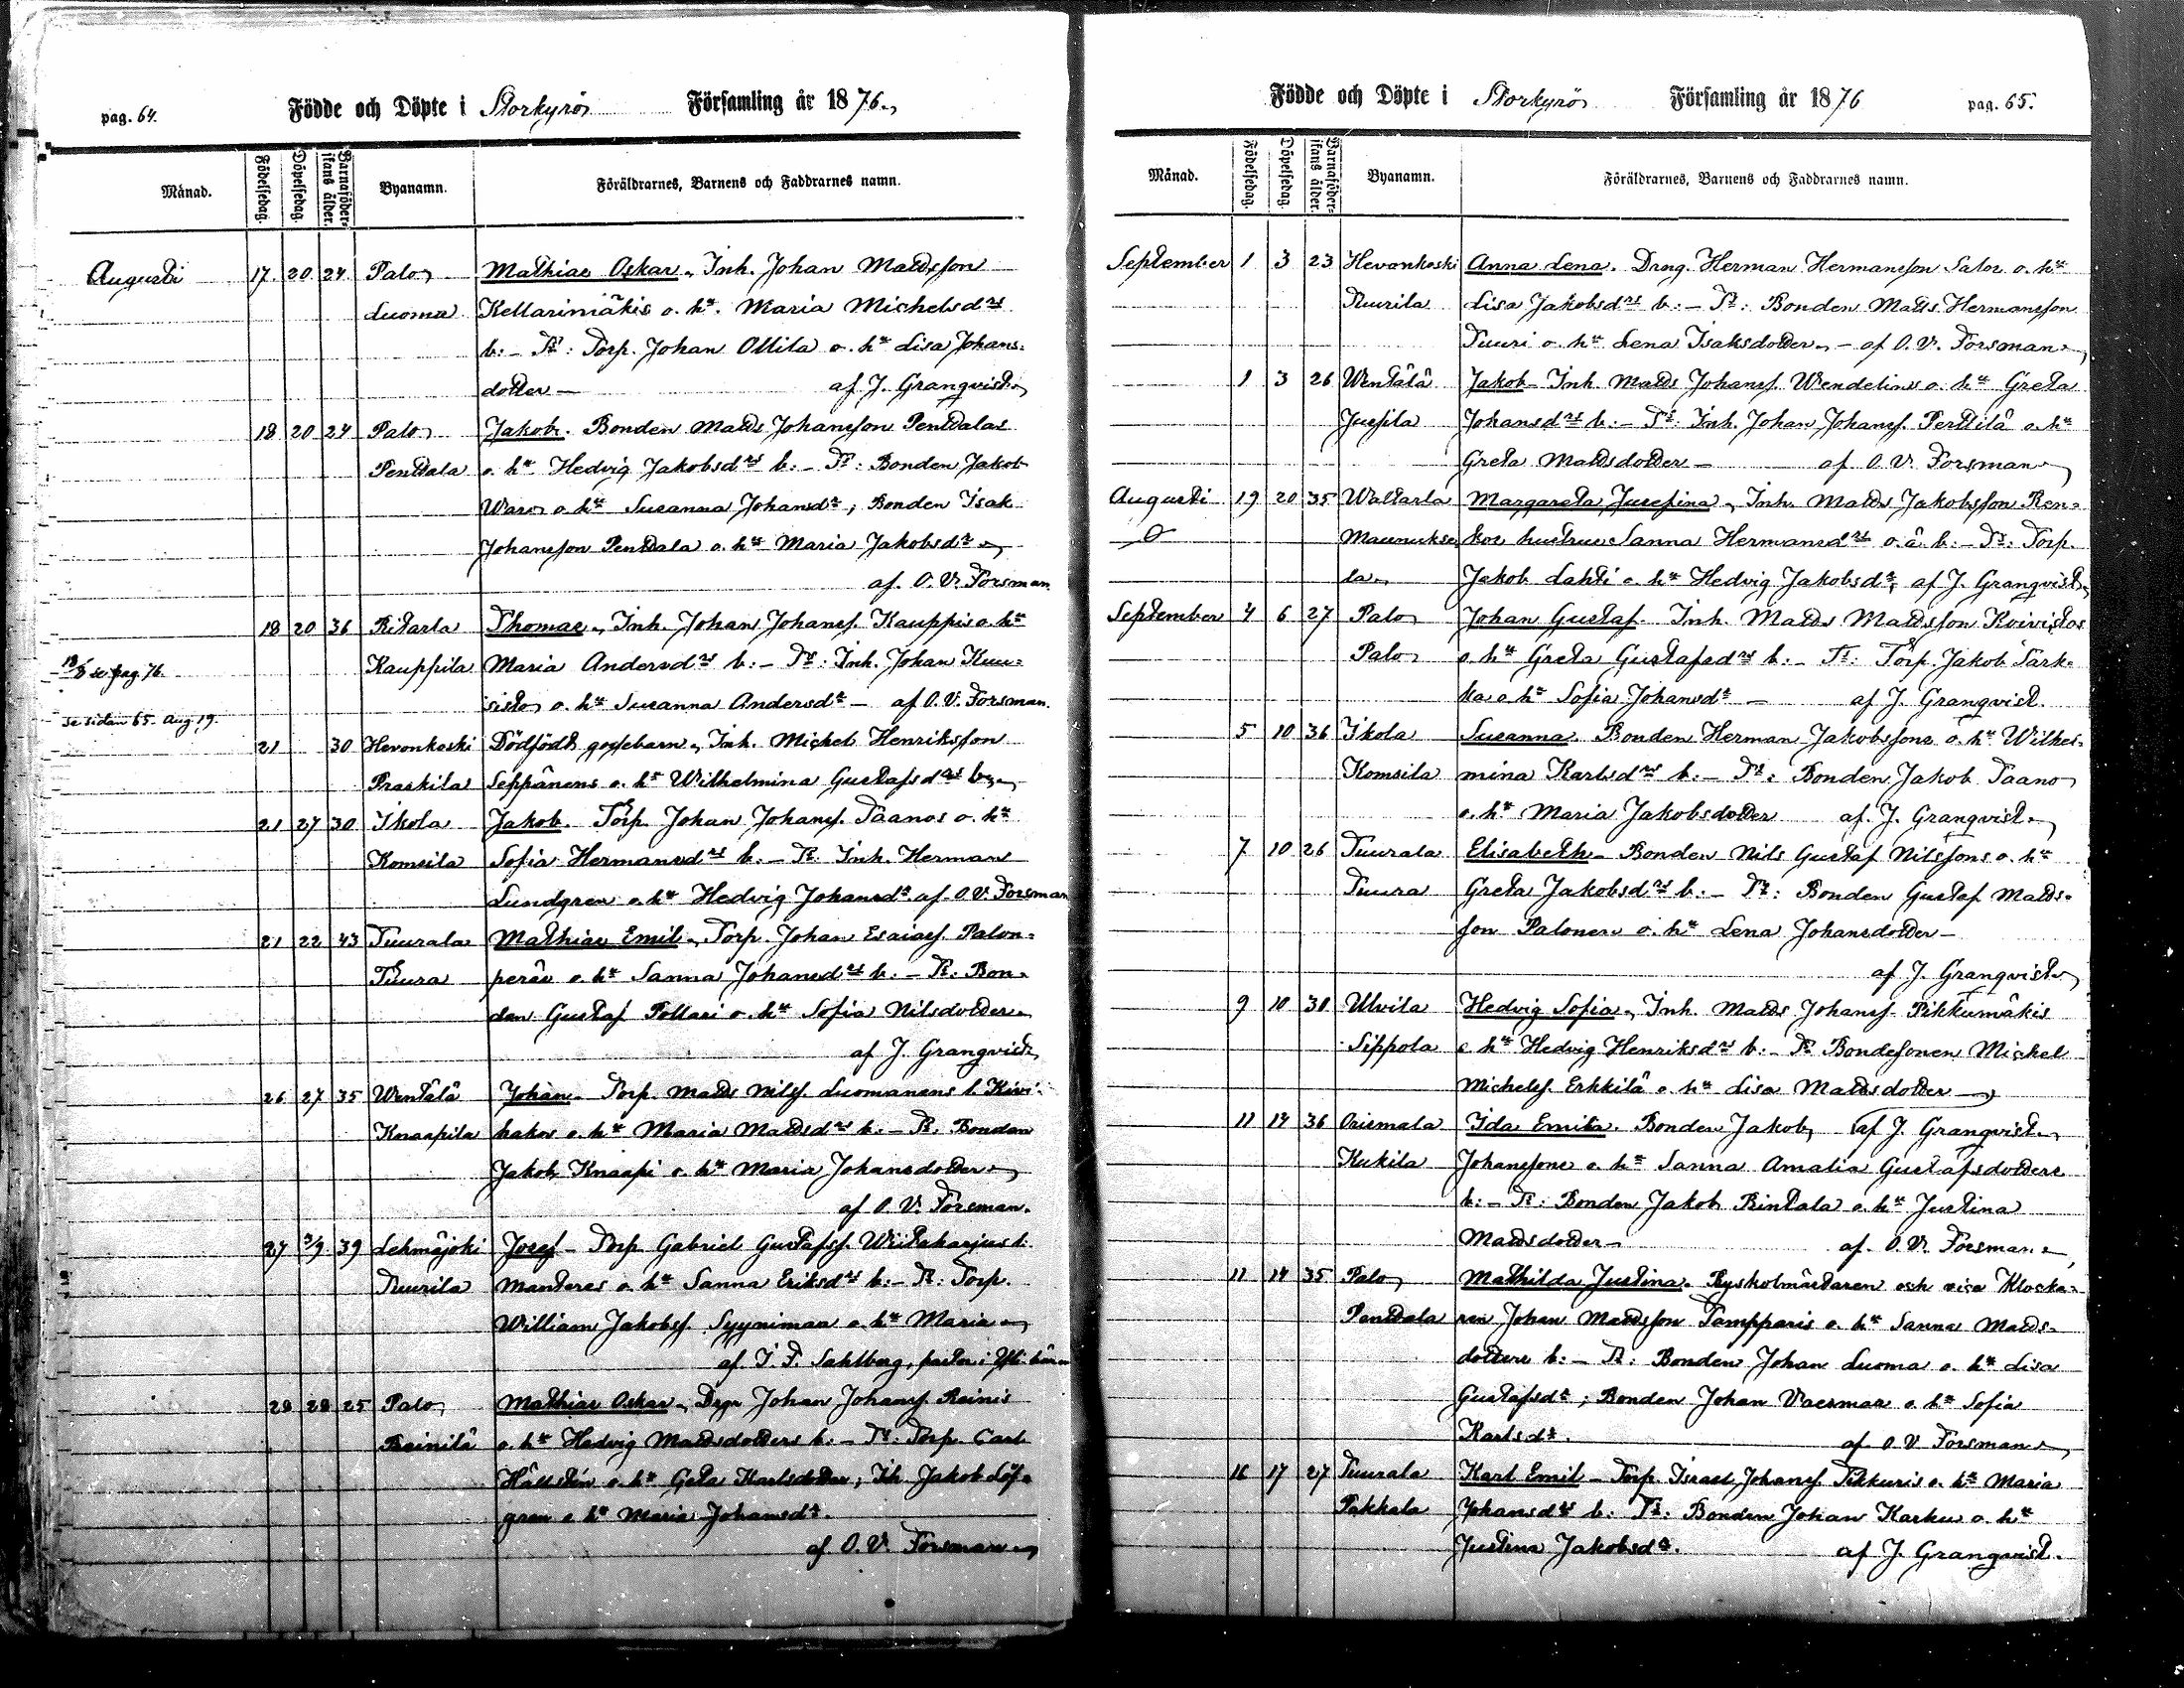 pag. 64. Födde och Döpte i Storkyrö Församling år 1876.
Månad. Födelsedag. Döpelsedag. Barnaföderskans ålder. Byanamn. Föräldrarnes, Barnens och Faddrarnes namn.
Augusti 17. 20. 24 Palo Mathias Oskar, Inh. Johan Mattsson
Luoma Kellarimäkis o. h. Maria Michelsd:rs
b: – Tt: Torp. Johan Ollila o. h:u Lisa Johans-
dotter – af J. Granqvist
18 20 24 Palo Jakob. Bonden Matts Johansson Penttalas
Penttala o. h:u Hedvig Jakobsd:rs b: – Tt: Bonden Jakob
Waro o. h:u Susanna Johansd:r; Bonden Isak
Johansson Penttala o. h:u Maria Jakobsd:r
af O. V. Forsman
18 20 36 Ritarla Thomas, Inh. Johan Johanss. Kauppis o. h:u
18/8 se pag. 76. Kauppila Maria Andersd:rs b: – Tt: Inh. Johan Kuu-
sisto o. h:u Susanna Andersd:r – af O. V. Forsman.
se sidan 65. Aug. 19.
21 30 Hevonkoski Dödfödt gossebarn, Inh. Michel Henriksson
Praskila Seppänens o. h:u Wilhelmina Gustafsd:rs b:
21 27 30 Ikola Jakob. Torp. Johan Johanss. Taanos o. h:u
Komsila Sofia Hermansd:rs b: – Tt: Inh. Herman
Lundgren o. h:u Hedvig Johansd:r af O. V. Forsman
21 22 43 Tuurala Mathias Emil, Torp. Johan Esaiass. Palon-
Tuura peräs o. h:u Sanna Johansd:rs b: – Tt: Bon-
den Gustaf Pollari o. h:u Sofia Nilsdotter
af J. Granqvist
26 27 35 Wentälä Johan – Torp. Matts Nilss. Luomanens l. Kivi-
Knaapila hakos o. h:u Maria Mattsd:rs b: – Tt: Bonden
Jakob Knaapi o. h:u Maria Johansdotter
af O. V. Forsman.
27 3/9 39 Lehmäjoki Josef – Torp. Gabriel Gustafss. Wiitaharjus l.
Tuurila Manteres o. h:u Sanna Eriksd:rs b: – Tt: Torp.
William Jakobss. Syynimaa o. h:u Maria
af I. F. Sahlberg, pastor i
28 28 25 Palo Mathias Oskar, Drgn Johan Johanss. Reinis
Reinilä o. h:u Hedvig Mattsdotters b: – Tt: Torp. Carl
Hällstén o. h:u Greta Karlsdotter; Ih. Jakob Löf-
gren o. h:u Maria Johansd:r.
af O. V. Forsman
Födde och Döpte i Storkyrö Församling år 1876 pag. 65.
Månad. Födelsedag. Döpelsedag. Barnaföderskans ålder. Byanamn. Föräldrarnes, Barnens och Faddrarnes namn.
September 1 3 23 Hevonkoski Anna Lena. Dräng. Herman Hermansson Salos o. h:u
Tuurila Lisa Jakobsd:rs b: – Tt: Bonden Matts Hermansson
Tuuri o. h:u Lena Isaksdotter – af O. V. Forsman
1 3 26 Wentälä Jakob – Inh. Matts Johanss. Wendelins o. h:u Greta
Jussila Johansd:rs b: – Tt: Inh. Johan Johanss. Perttilä o. h:u
Greta Mattsdotter – af O. V. Forsman
Augusti 19 20 35 Waltarla Margareta Josefina, Inh. Matts Jakobsson Ren-
Maunuksekos hustru Sanna Hermansd:rs o. ä. b: – Tt: Torp.
la Jakob Lahti o. h:u Hedvig Jakobsd:r, af J. Granqvist
September 4 6 27 Palo Johan Gustaf. Inh. Matts Mattsson Koivistos
Palo o. h:u Greta Gustafsd:rs b: – Tt: Torp. Jakob Sark-
ka o. h:u Sofia Johansd:r – af J. Granqvist.
5 10 36 Ikola Susanna. Bonden Herman Jakobssons o. h:u Wilhel-
Komsila mina Karlsd:rs b: – Tt: Bonden Jakob Taano
o. h:u Maria Jakobsdotter af J. Granqvist
7 10 26 Tuurala Elisabeth – Bonden Nils Gustaf Nilssons o. h:u
Tuura Greta Jakobsd:rs b: – Tt: Bonden Gustaf Matts-
son Palonen o. h:u Lena Johansdotter –
af J. Granqvist
9 10 30 Ulvila Hedvig Sofia, Inh. Matts Johanss. Pikkumäkis
Sippola o. h:u Hedvig Henriksd:rs b: – Tt: Bondesonen Michel
Michelss. Erkkilä o. h:u Lisa Mattsdotter
11 14 36 Orismala Ida Emilia. Bonden Jakob af J. Granqvist
Kukila Johanssons o. h:u Sanna Amalia Gustafsdotters
b: – Tt: Bonden Jakob Rintala o. h:u Justina
Mattsdotter – af O. V. Forsman
11 14 35 Palo Mathilda Justina. Byskolmästaren och vice Klocka-
Penttala ren Johan Mattsson Tampparis o. h:u Sanna Matts-
dotters b: – Tt: Bonden Johan Luoma o. h:u Lisa
Gustafsd:r; Bonden Johan Vaismaa o. h:u Sofia
Karlsd:r. af O. V. Forsman
16 17 27 Tuurala Karl Emil – Torp. Israel Johanss. Tikkuris o. h:u Maria
Pakkala Johansd:rs b: Tt: Bonden Johan Karhu o. h:u
Justina Jakobsd:r. af J. Granqvist.